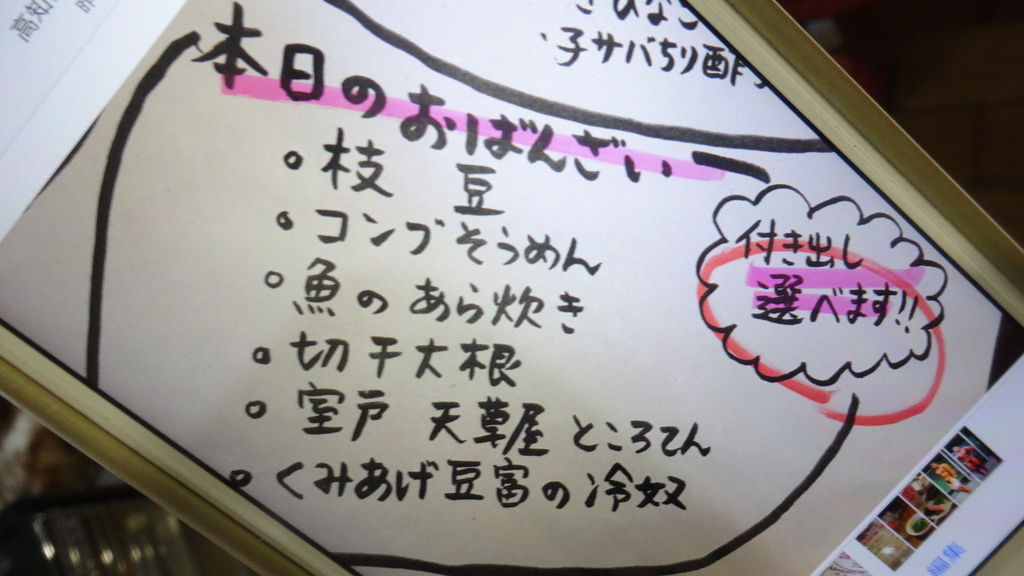 高知
きびなご
・子サバちり酢
本日のおばんざい
○ 枝 豆
○ コンブそうめん
○ 魚の あら炊き
○ 切干大根
○ 室戸 天草屋 ところてん
○ くみあげ豆富の冷奴
付き出し
選べます!!
編集